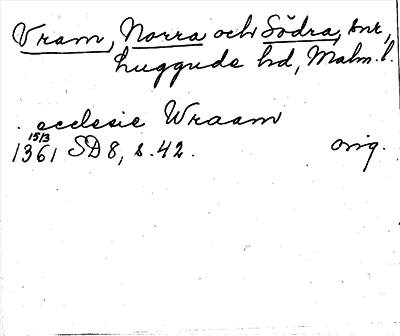 Vram, Norra och Södra, snr,
Luggude hd, Malm. l.
. ecclesie Wraam
15/3
1361 SD 8, s. 42. orig.